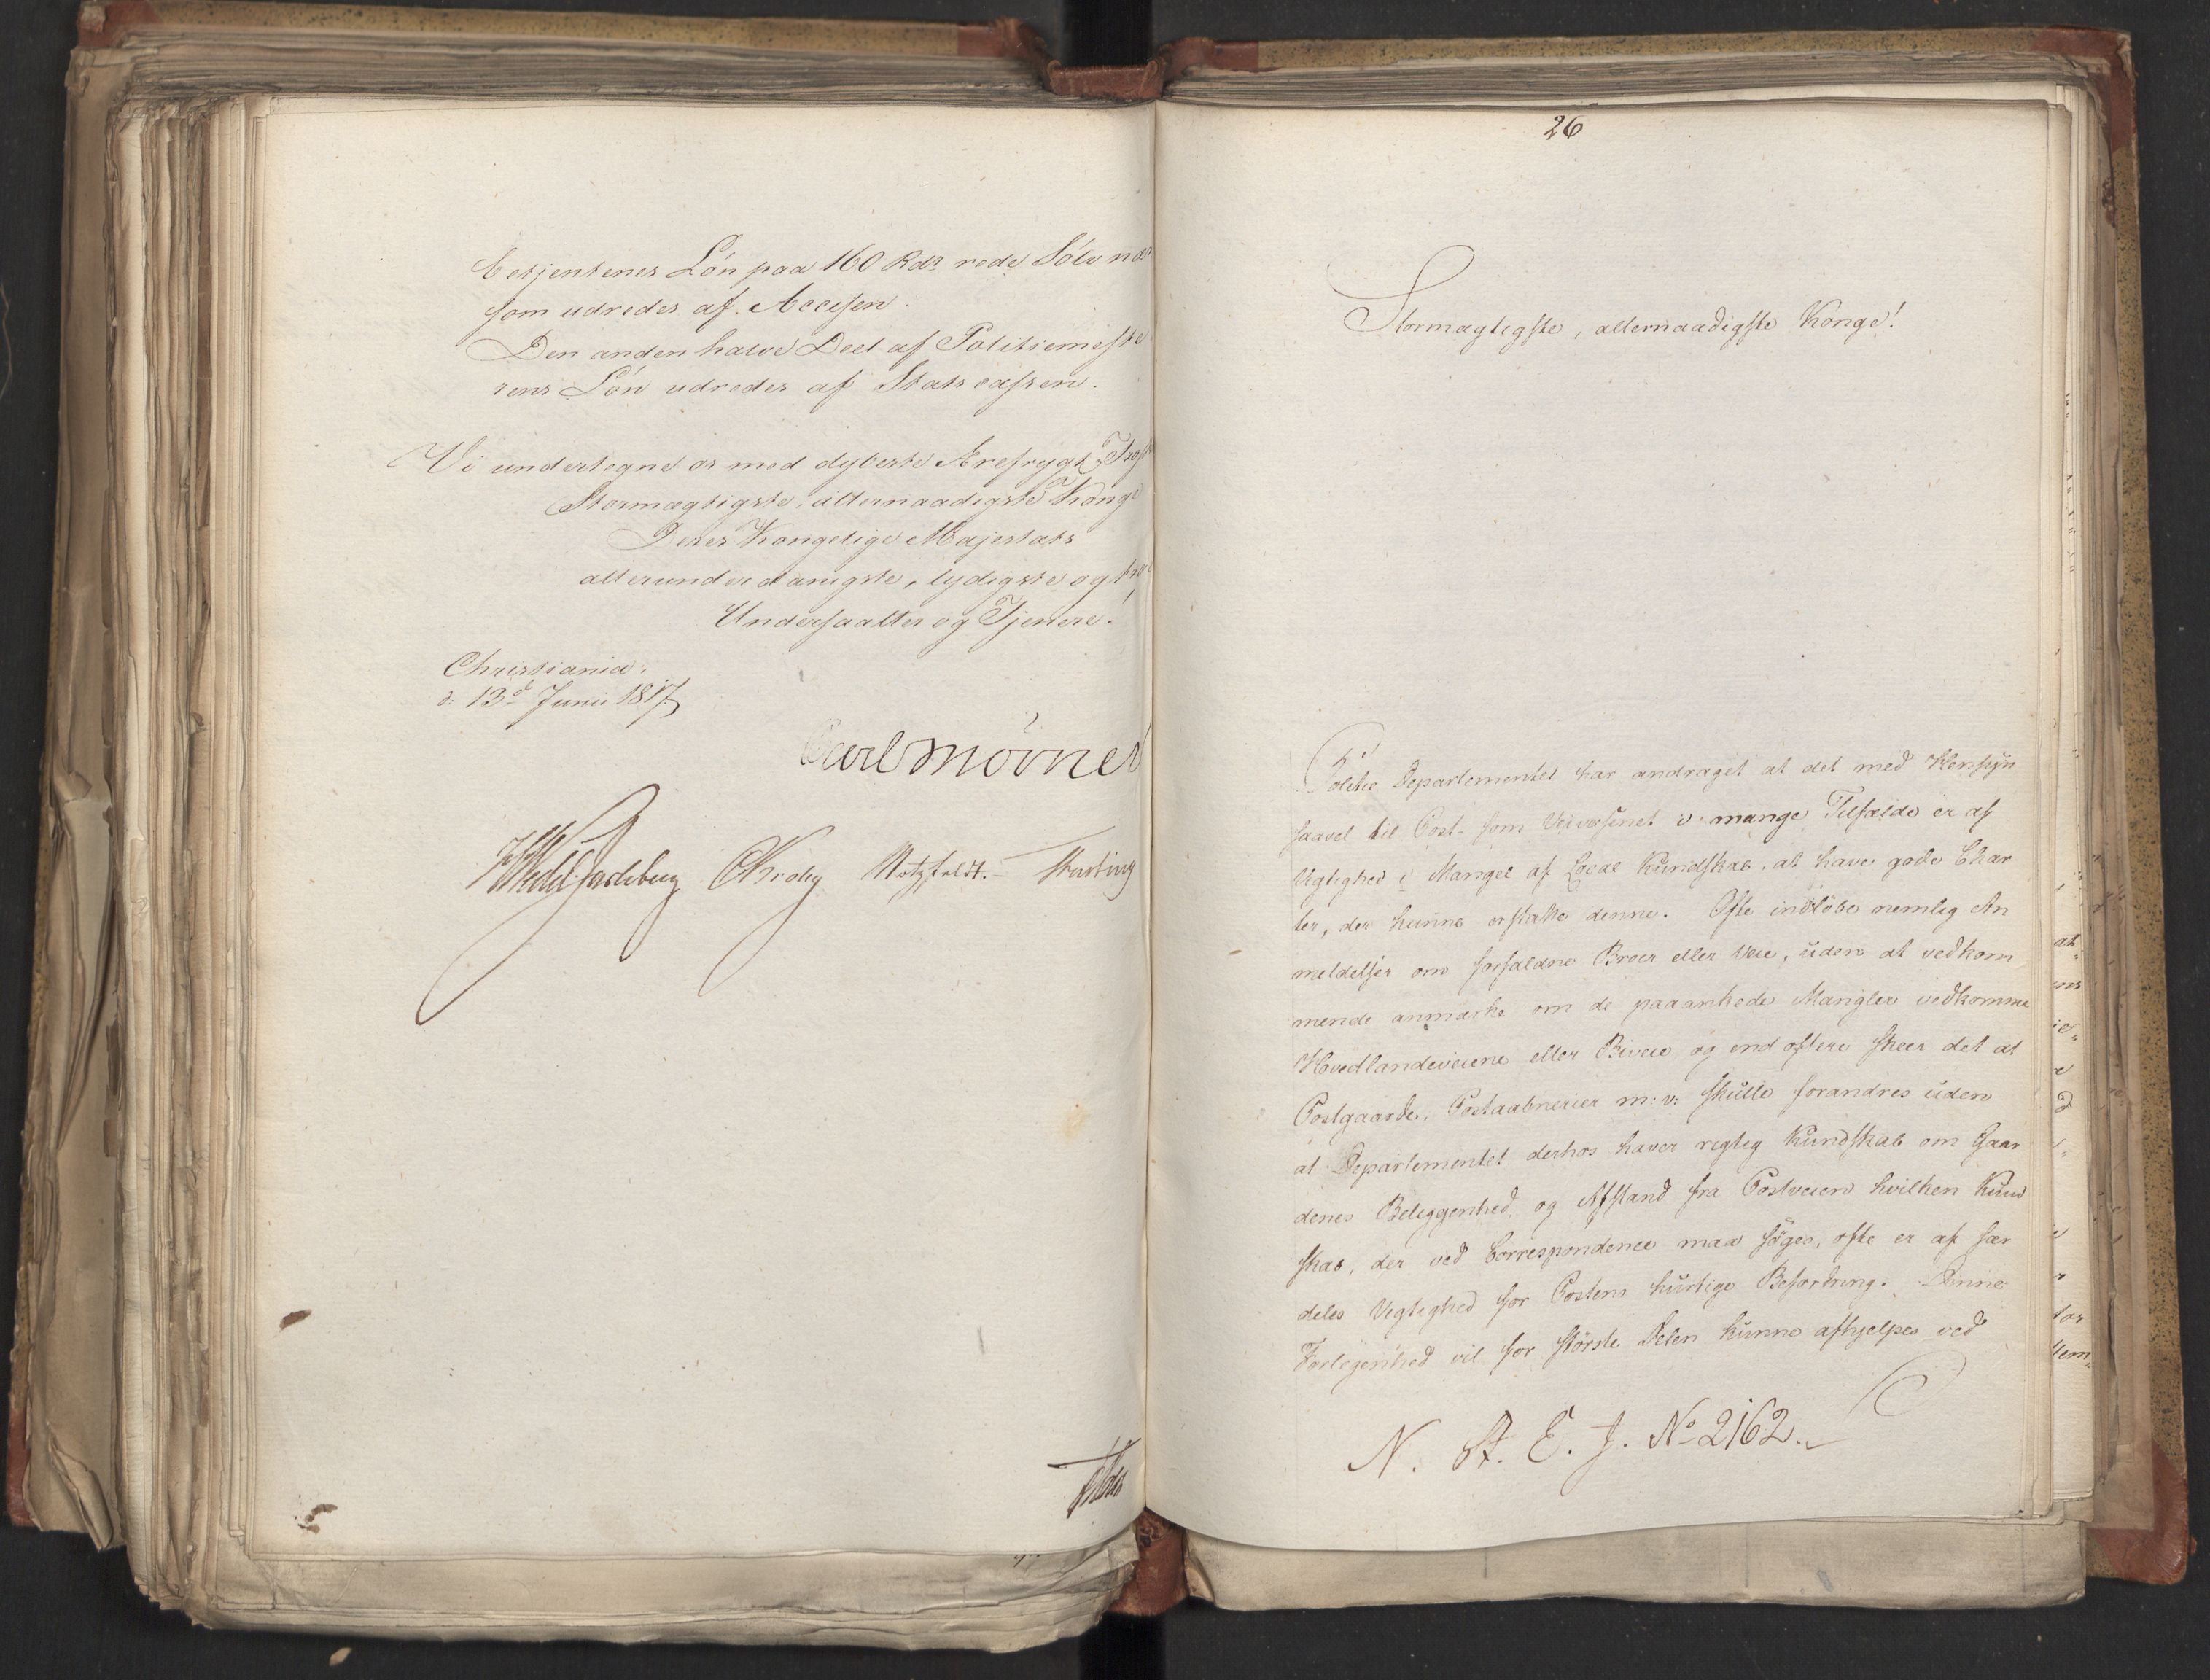 betjentenes Lön paa 160 Rdr rede Sölv
som udredes af Accisen.
Den anden halve Deel af Politiemeste
rens Lön udredes af Statscassen.
Vi undertegne os med dybeste Ærefrygt,
Stormægtigste, allernaadigste Konge
Deres Kongelige Majestæts
allerunderdanigste, lydigste og
Undersaatter og Tjenere.
Christiania
d: 13d Junii 1817
Carl Mörner
HWedel Jarlsberg CKrohg Motzfeldt.
26
Stormægtigste, allernaadigste Konge!
Politie Departementet har andraget at det med Hensÿn
saavel til Post- som Veivæsenet i mange Tilfælde er af
Vigtighed i Mangel af Local Kundskab, at have gode Char
ter, der kunne erstatte denne. Ofte indlöbe nemlig An
meldelser om forfaldne Broer eller Veie, uden at vedkom
mende anmærke om de paaankede Mangler vedkomme
Hovedlandeveiene eller Biveie og end oftere skeer det at
Postgaarde, Postaabnerier m: v: skulle forandres uden
at Departementet derhos haver rigtig Kundskab om Gaar
denes Beliggenhed og Afstand fra Postveien hvilken Kund
skab, der ved Correspondence maa söges, ofte er af sær
deles Vigtighed for Postens hurtige Befordring. Denne
Forlegenhed vil for störste Delen kunne afhjelpes ved
N. A. E. J. No 2162.